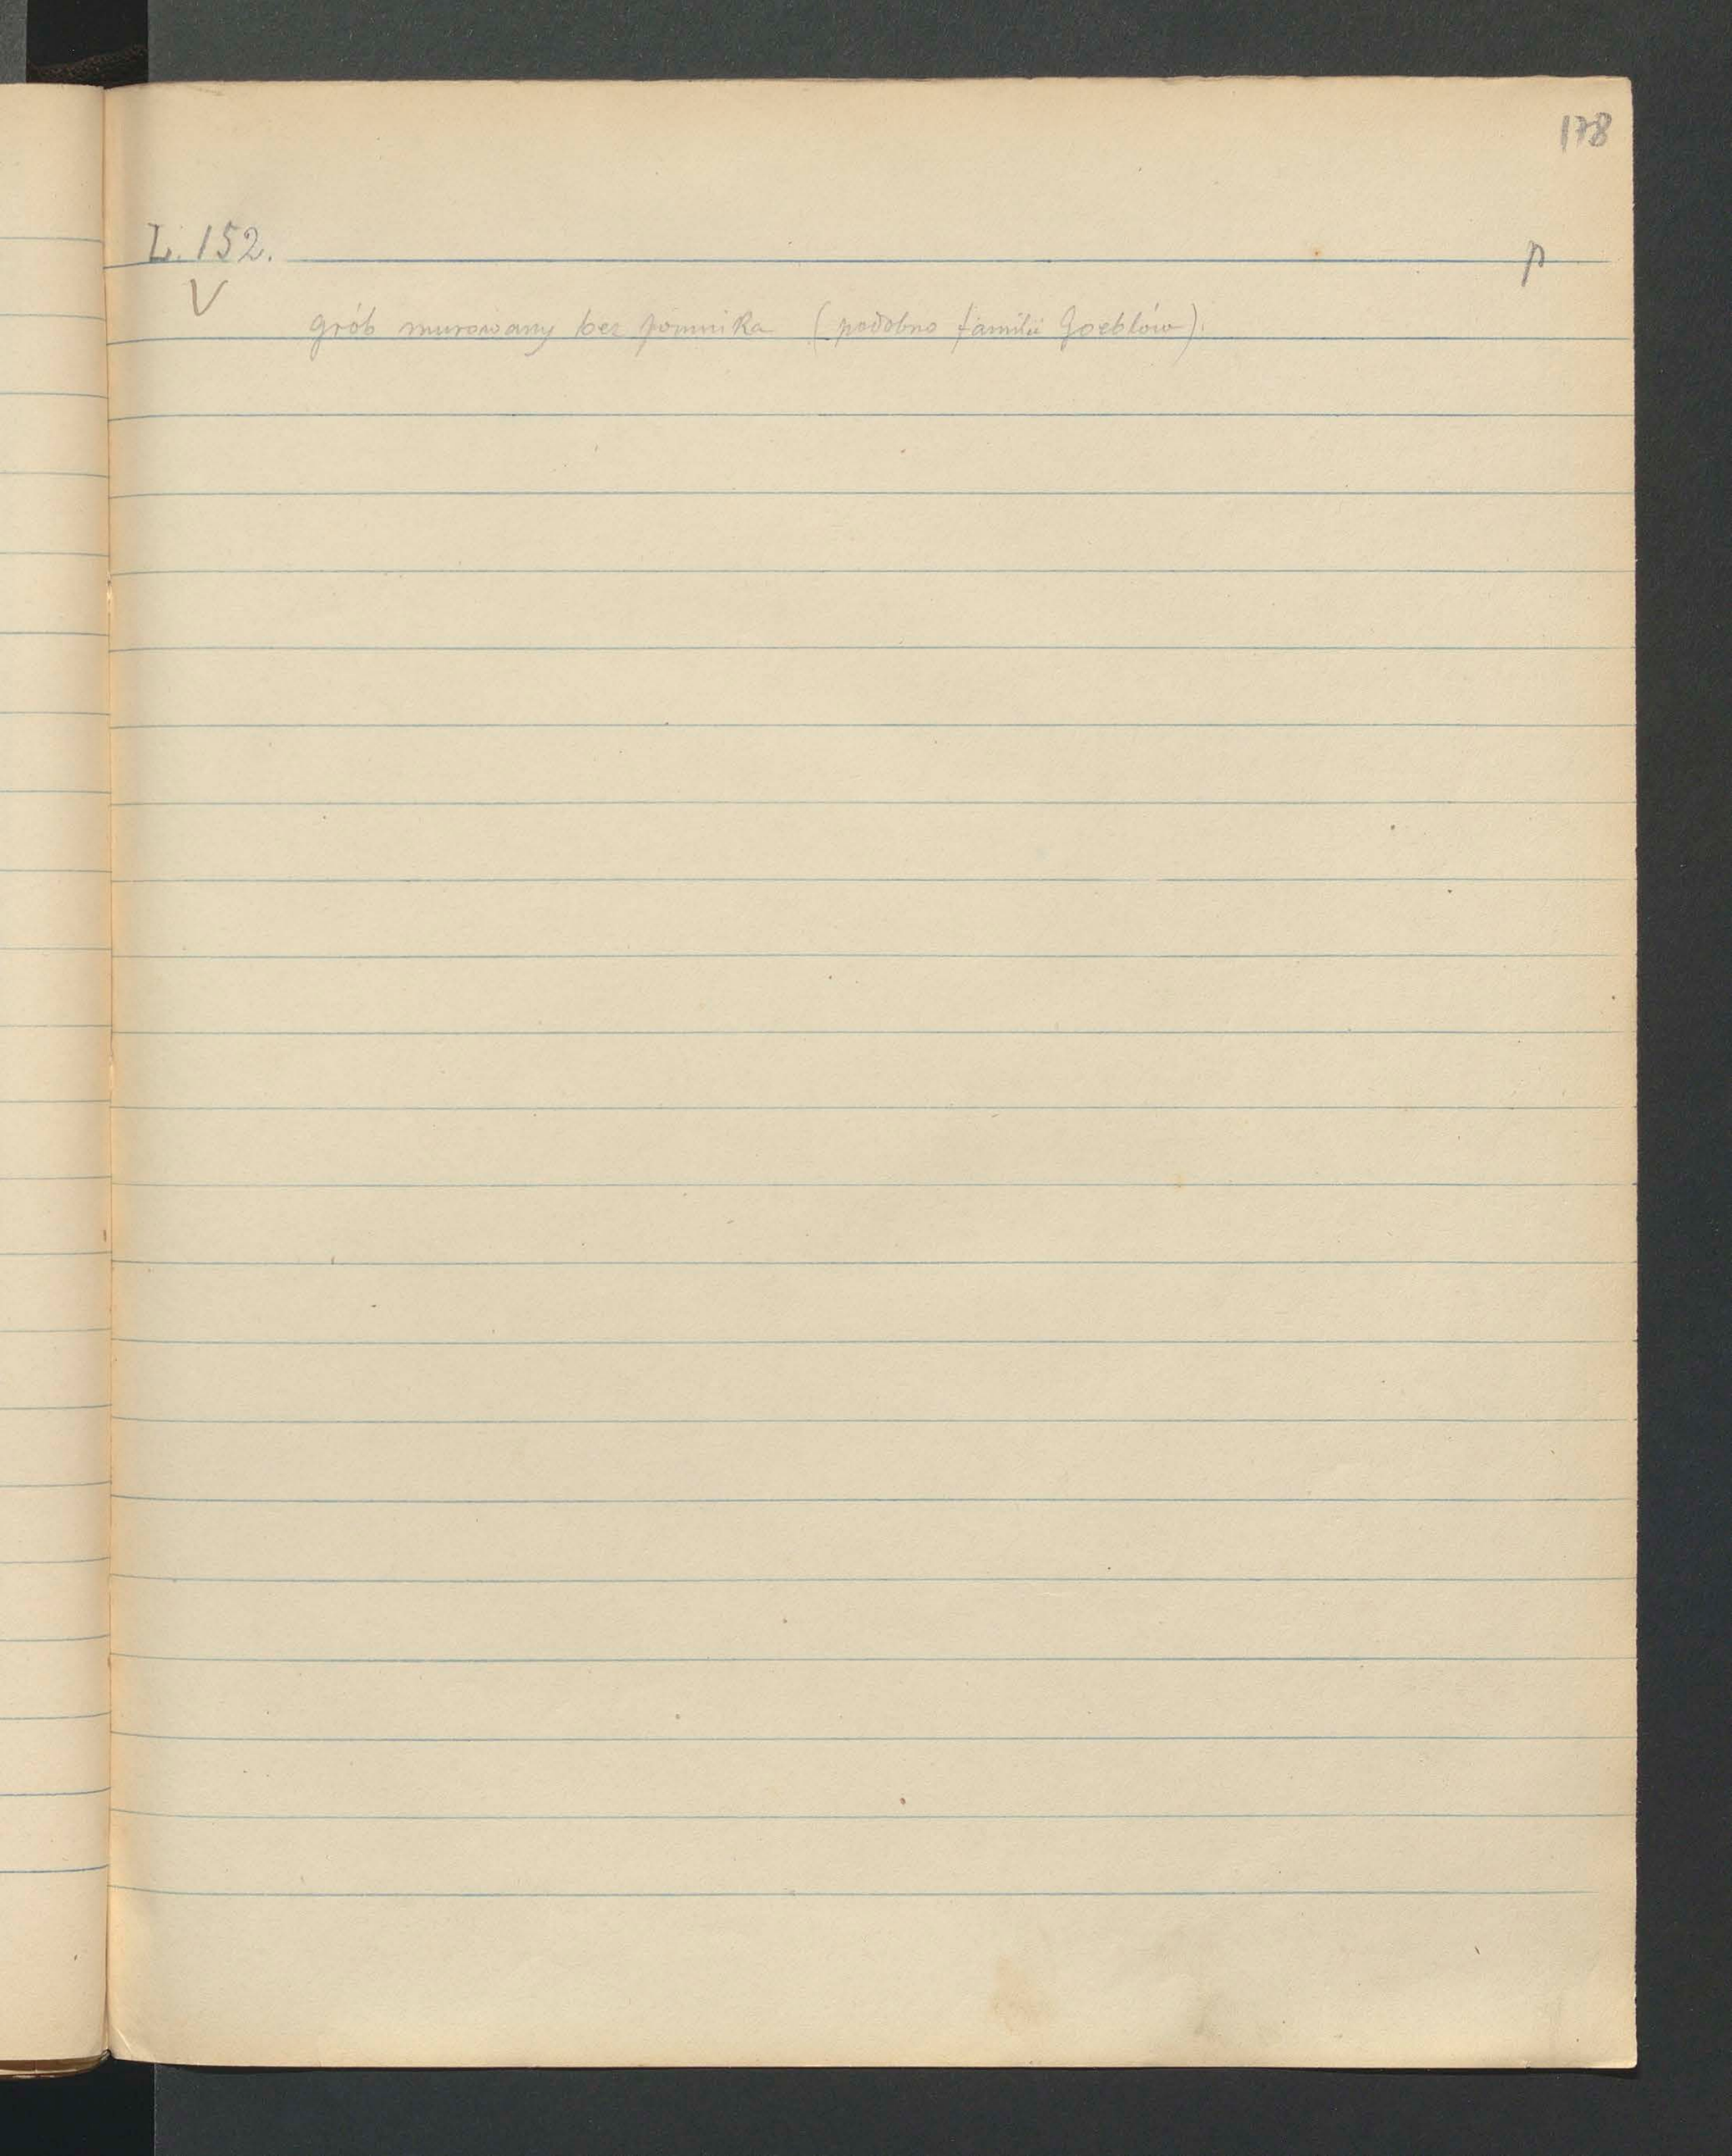 178
L. 152.
p
V
grób murowany bez pomnika (podobno familii Goeblów).